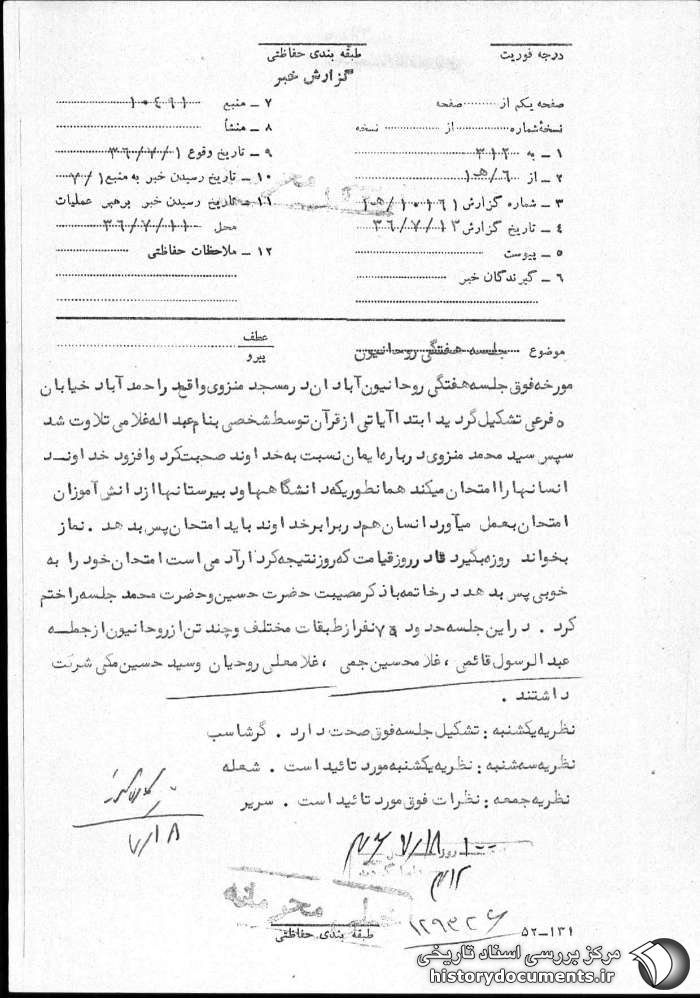 درجه فوریت
طبقه بندی حفاظتی
گزارش خبر
صفحه یکم از ........ صفحه
نسخه شماره ........ از ........ نسخه
۱ – به ۳۱۲
۲ – از ۶/ه‍۱
۳ – شماره گزارش ۱۰۱۶۱/ه‍۱
۴ – تاریخ گزارش ۳۶/۷/۱۳
۵ – پیوست
۶ – گیرندگان خبر
۷ – منبع ۱۰۴۹۱
۸ – منشأ
۹ – تاریخ وقوع ۳۶/۷/۱
۱۰ – تاریخ رسیدن خبر به منبع ۷/۱
۱۱ – تاریخ رسیدن خبر برهبر عملیات
محل ۳۶/۷/۱۱
۱۲ – ملاحظات حفاظتی
موضوع جلسه هفتگی روحانیون
عطف
پیرو
مورخه فوق جلسه هفتگی روحانیون آبادان در مسجد منزوی واقع در احمد آباد خیابان
۵ فرعی تشکیل گردید ابتدا آیاتی از قرآن توسط شخصی بنام عبداله غلامی تلاوت شد
سپس سید محمد منزوی درباره ایمان نسبت به خداوند صحبت کرد و افزود خداوند
انسانها را امتحان میکند همانطوریکه دانشگاهها و دبیرستانها از دانش آموزان
امتحان بعمل میآورد انسان هم در برابر خداوند باید امتحان پس بدهد . نماز
بخواند روزه بگیرد در روز قیامت که روز نتیجه کردار آدمی است امتحان خود را به
خوبی پس بدهد در خاتمه با ذکر مصیبت حضرت حسین و حضرت محمد جلسه را ختم
کرد . در این جلسه حدود ۷۵ نفر از طبقات مختلف و چند تن از روحانیون از جمله
عبدالرسول قائمی ، غلامحسین جمی ، غلامعلی روحیان و سید حسین مکی شرکت
داشتند .
نظریه یکشنبه : تشکیل جلسه فوق صحت دارد . گرشاسب
نظریه سه شنبه : نظریه یکشنبه مورد تائید است . شعله
نظریه جمعه : نظرات فوق مورد تائید است . سریر
۷/۱۸
۳۶/۷/۱۸
۳۱۲
خیلی محرمانه
طبقه بندی حفاظتی
۱۲۹۳۲۶
۵۲–۱۳۱
مرکز بررسی اسناد تاریخی
historydocuments.ir